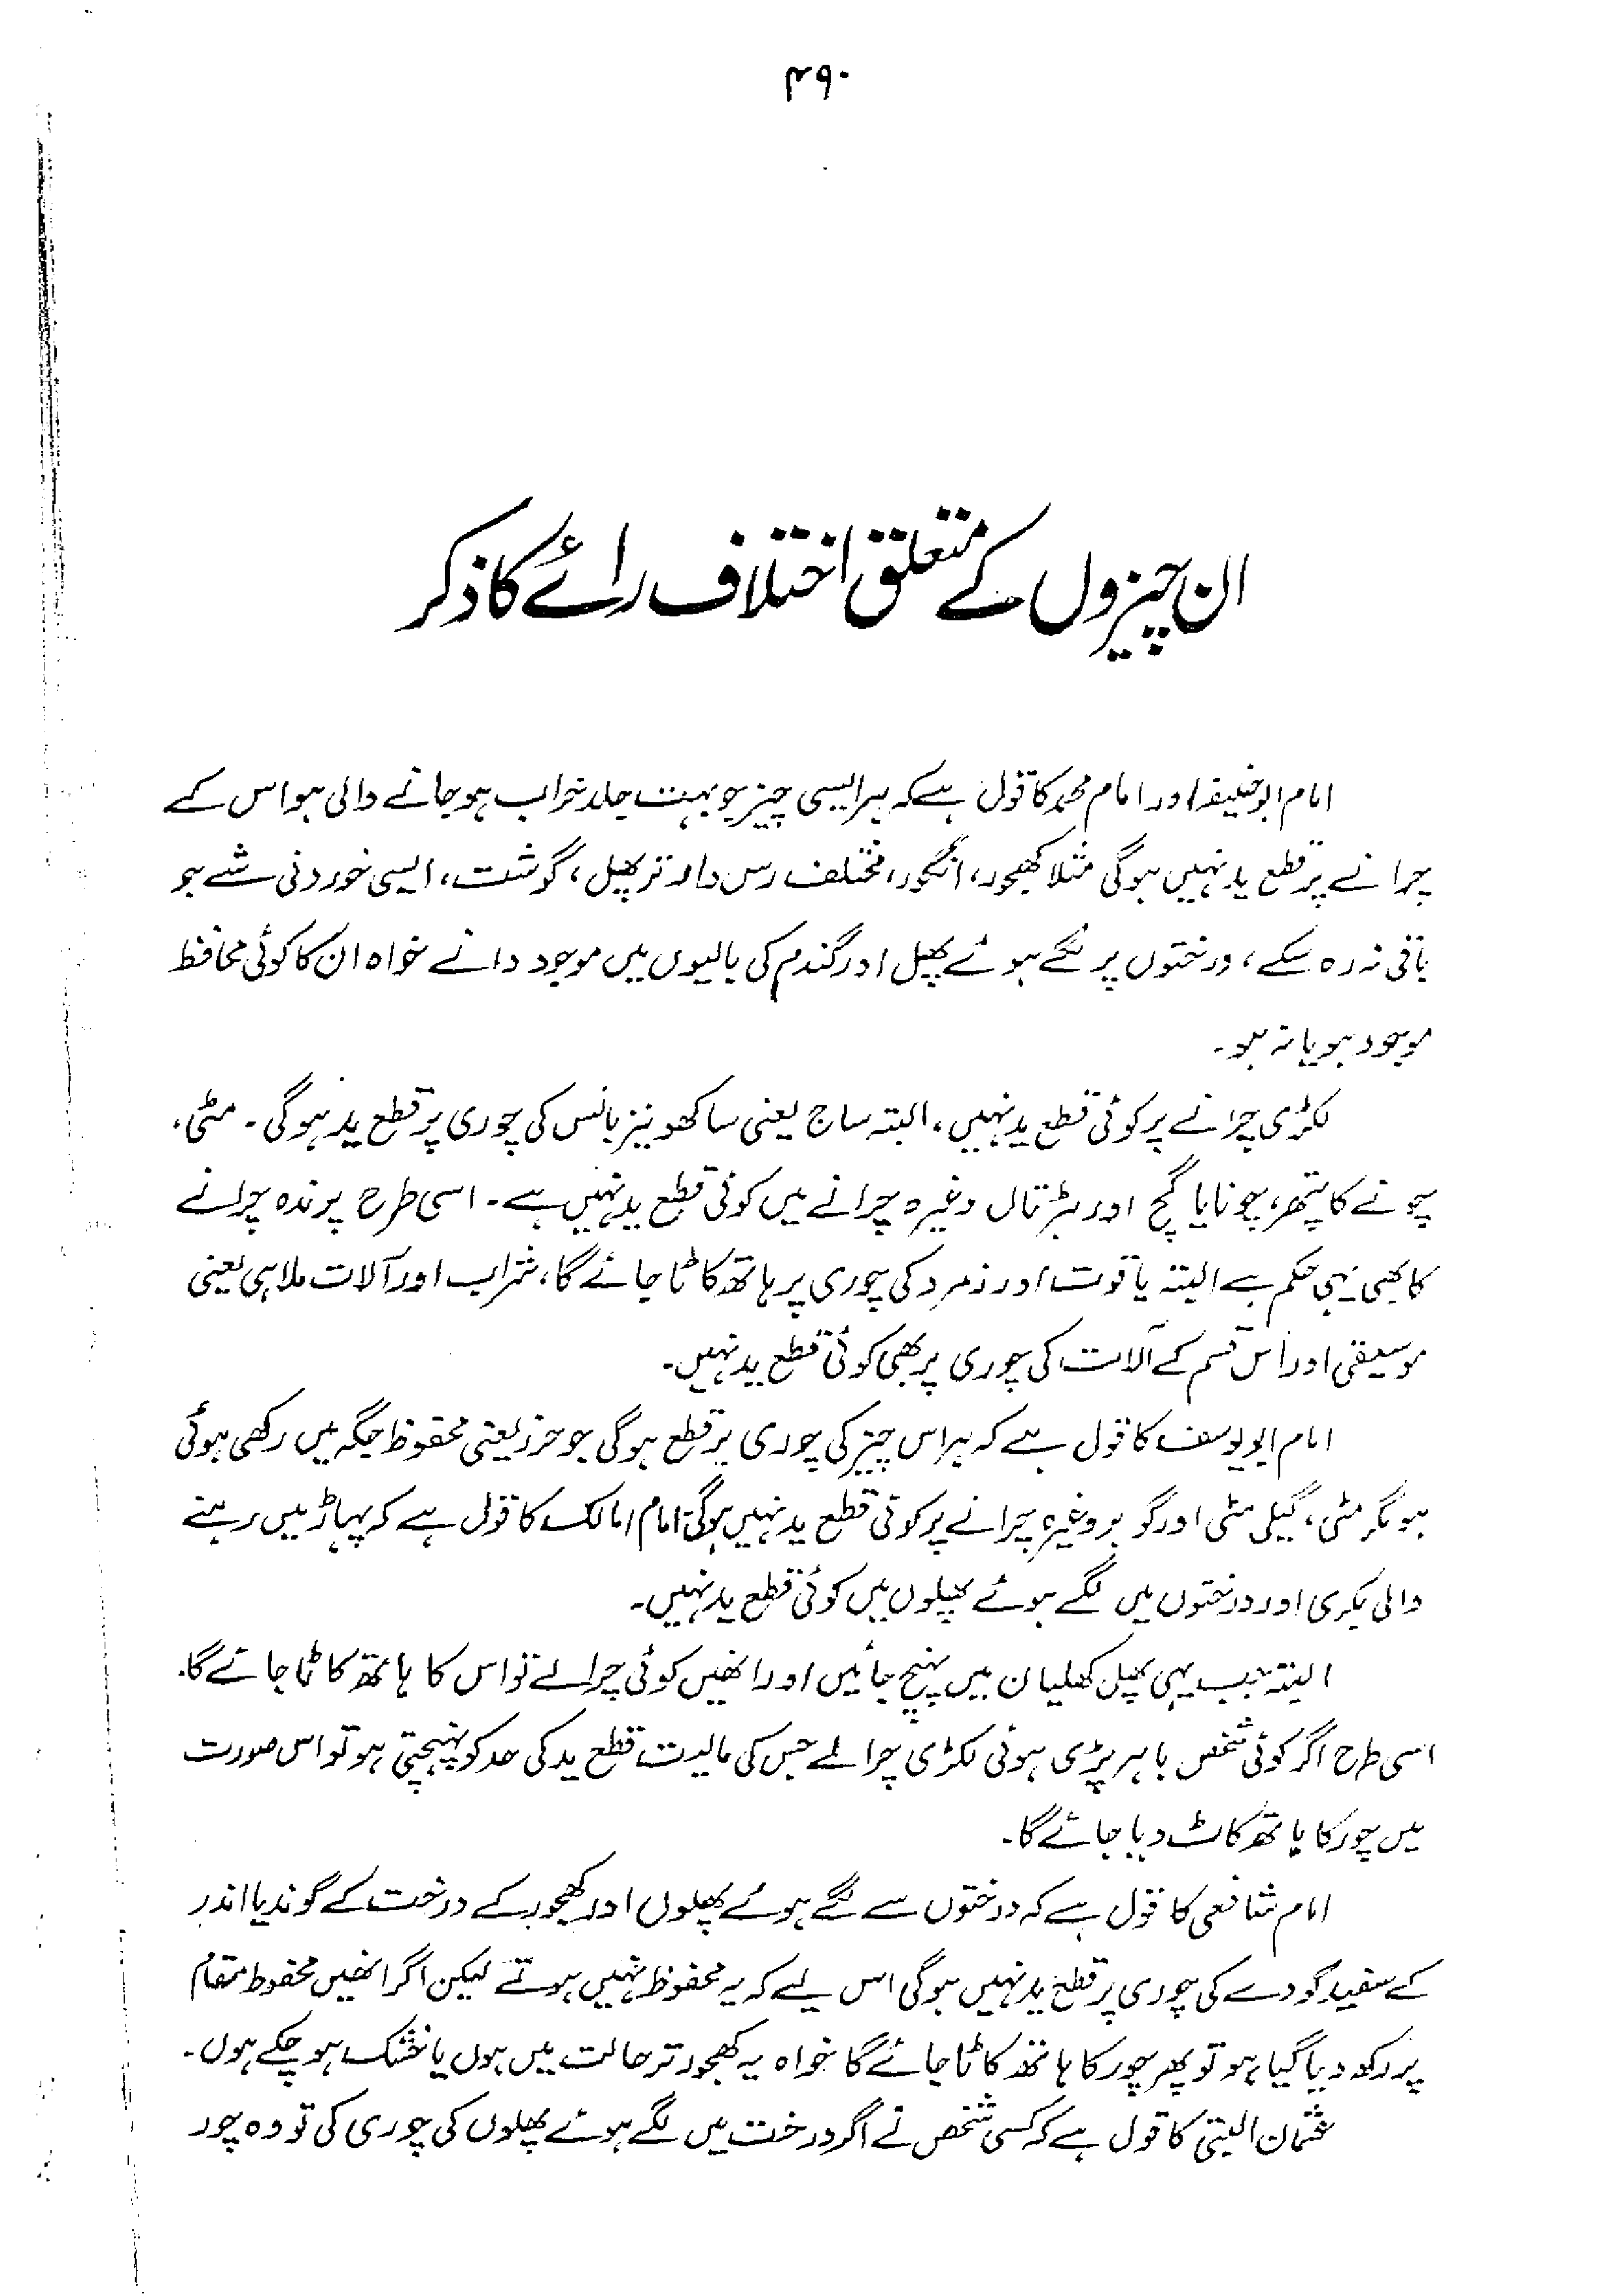 ۴۹۰
ان چیزوں کے متعلق اختلاف رائے کا ذکر
امام ابو حنیفہ اور امام محمد کا قول ہے کہ ہر ایسی چیز جو بہت جلد خراب ہو جانے والی ہو اس کے
چرانے پر قطع ید نہیں ہو گی مثلا کھجور، انگور، مختلف رس دار تر پھل، گوشت، ایسی خوردنی شے جو
باقی نہ رہ سکے، درختوں پر لگے ہوئے پھل اور گندم کی بالیوں میں موجود دانے خواہ ان کا کوئی محافظ
موجود ہو یا نہ ہو۔
لکڑی چرانے پر کوئی قطع ید نہیں، البتہ ساج یعنی ساکھو نیز بانس کی چوری پر قطع ید ہو گی۔ مٹی،
چونے کا پتھر، چونا یا گچ اور ہڑتال وغیرہ چرانے میں کوئی قطع ید نہیں ہے۔ اسی طرح پرندہ چرانے
کا بھی یہی حکم ہے البتہ یاقوت اور زمرد کی چوری پر ہاتھ کاٹا جائے گا، شراب اور آلات ملاہی یعنی
موسیقی اور اس قسم کے آلات کی چوری پر بھی کوئی قطع ید نہیں۔
امام ابو یوسف کا قول ہے کہ ہر اس چیز کی چوری پر قطع ہو گی جو حرز یعنی محفوظ جگہ میں رکھی ہوئی
ہو مگر مٹی، گیلی مٹی اور گوبر وغیرہ چرانے پر کوئی قطع ید نہیں ہوگی۔ امام مالک کا قول ہے کہ پہاڑ میں رہنے
والی بکری اور درختوں میں لگے ہوئے پھلوں میں کوئی قطع ید نہیں۔
البتہ جب یہی پھل کھلیان میں پہنچ جائیں اور انھیں کوئی چرا لے تو اس کا ہاتھ کاٹا جائے گا۔
اسی طرح اگر کوئی شخص باہر پڑی ہوئی لکڑی چرا لے جس کی مالیت قطع ید کی حد کو پہنچتی ہو تو اس صورت
میں چور کا ہاتھ کاٹ دیا جائے گا۔
امام شافعی کا قول ہے کہ درختوں سے لگے ہوئے پھلوں اور کھجور کے درخت کے گوند یا اندر
کے سفید گودے کی چوری پر قطع ید نہیں ہو گی اس لیے کہ یہ محفوظ نہیں ہوتے لیکن اگر انھیں محفوظ مقام
پر رکھ دیا گیا ہو تو پھر چور کا ہاتھ کاٹا جائے گا خواہ یہ کھجور تر حالت میں ہوں یا خشک ہو چکے ہوں۔
عثمان البتی کا قول ہے کہ کسی شخص نے اگر درخت میں لگے ہوئے پھلوں کی چوری کی تو وہ چور